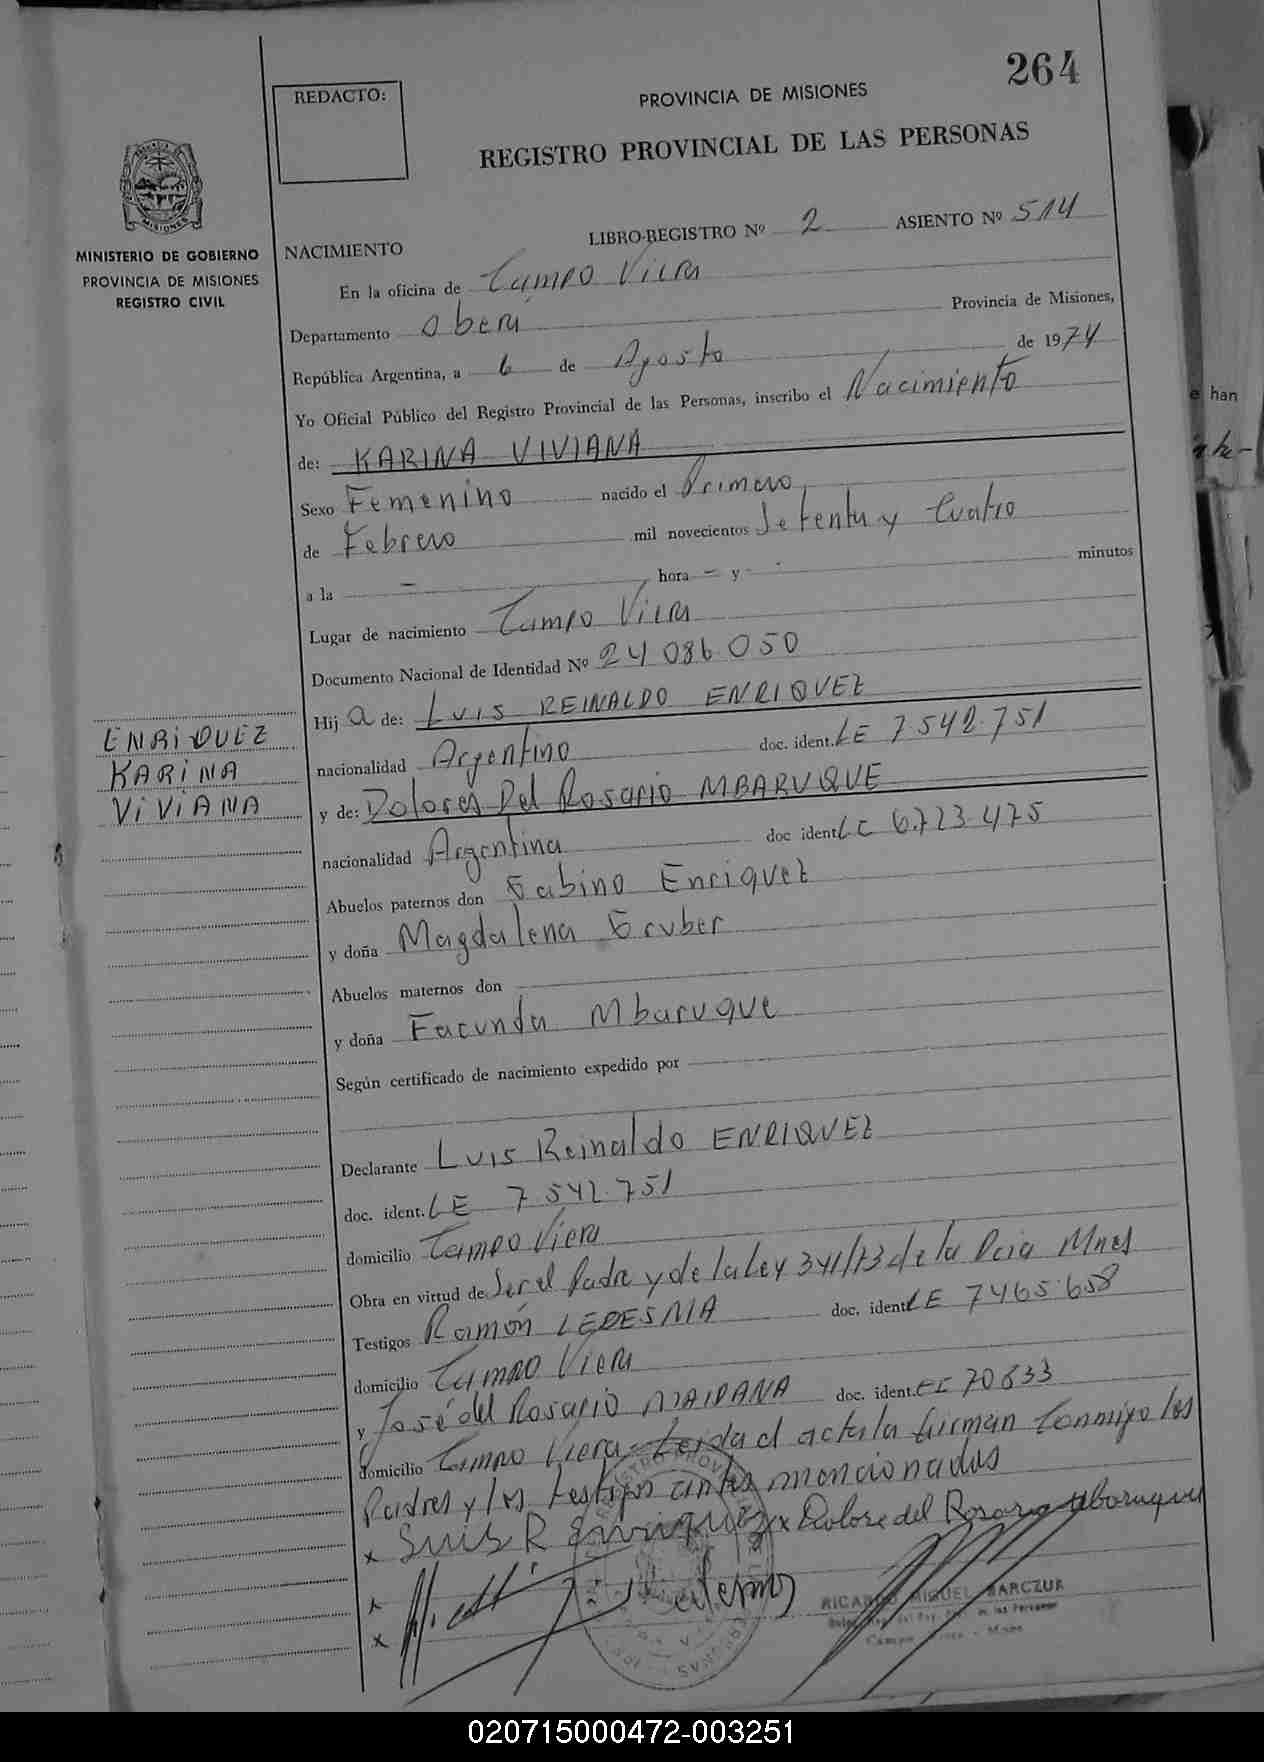 264
REDACTO:
PROVINCIA DE MISIONES
REGISTRO PROVINCIAL DE LAS PERSONAS
MISIONES
MINISTERIO DE GOBIERNO
PROVINCIA DE MISIONES
REGISTRO CIVIL
NACIMIENTO
LIBRO-REGISTRO Nº 2 ASIENTO Nº 514
En la oficina de Campo Viera
Departamento Oberá Provincia de Misiones,
República Argentina, a 6 de Agosto de 1974
Yo Oficial Público del Registro Provincial de las Personas, inscribo el Nacimiento
de: KARINA VIVIANA
Sexo Femenino nacido el Primero
de Febrero mil novecientos Setenta y Cuatro
a la - hora - y - minutos
Lugar de nacimiento Campo Viera
Documento Nacional de Identidad Nº 24 086.050
Hij a de: LUIS REINALDO ENRIQUEZ
nacionalidad Argentino doc. ident. LE 7.542.751
y de: Dolores Del Rosario MBARUQUE
nacionalidad Argentina doc ident LC 6.723.475
Abuelos paternos don Gabino Enriquez
y doña Magdalena Gruber
Abuelos maternos don
y doña Facunda Mbaruque
Según certificado de nacimiento expedido por
Declarante Luis Reinaldo ENRIQUEZ
doc. ident. LE 7.542.751
domicilio Campo Viera
Obra en virtud de Ser el Padre y de la Ley 341/73 de la Pcia Mnes
Testigos Ramón LEDESMA doc. ident LE 7465.658
domicilio Campo Viera
y José del Rosario MAIDANA doc. ident. 70833
domicilio Campo Viera - Leida el acta la firman Conmigo los
Padres y los testigos antes mencionados
x Luis R Enriquez x Dolore del Rosario Mbaruque
x
x
RICARDO MIGUEL BARCZUK
ENRIQUEZ
KARINA
VIVIANA
e han
020715000472-003251